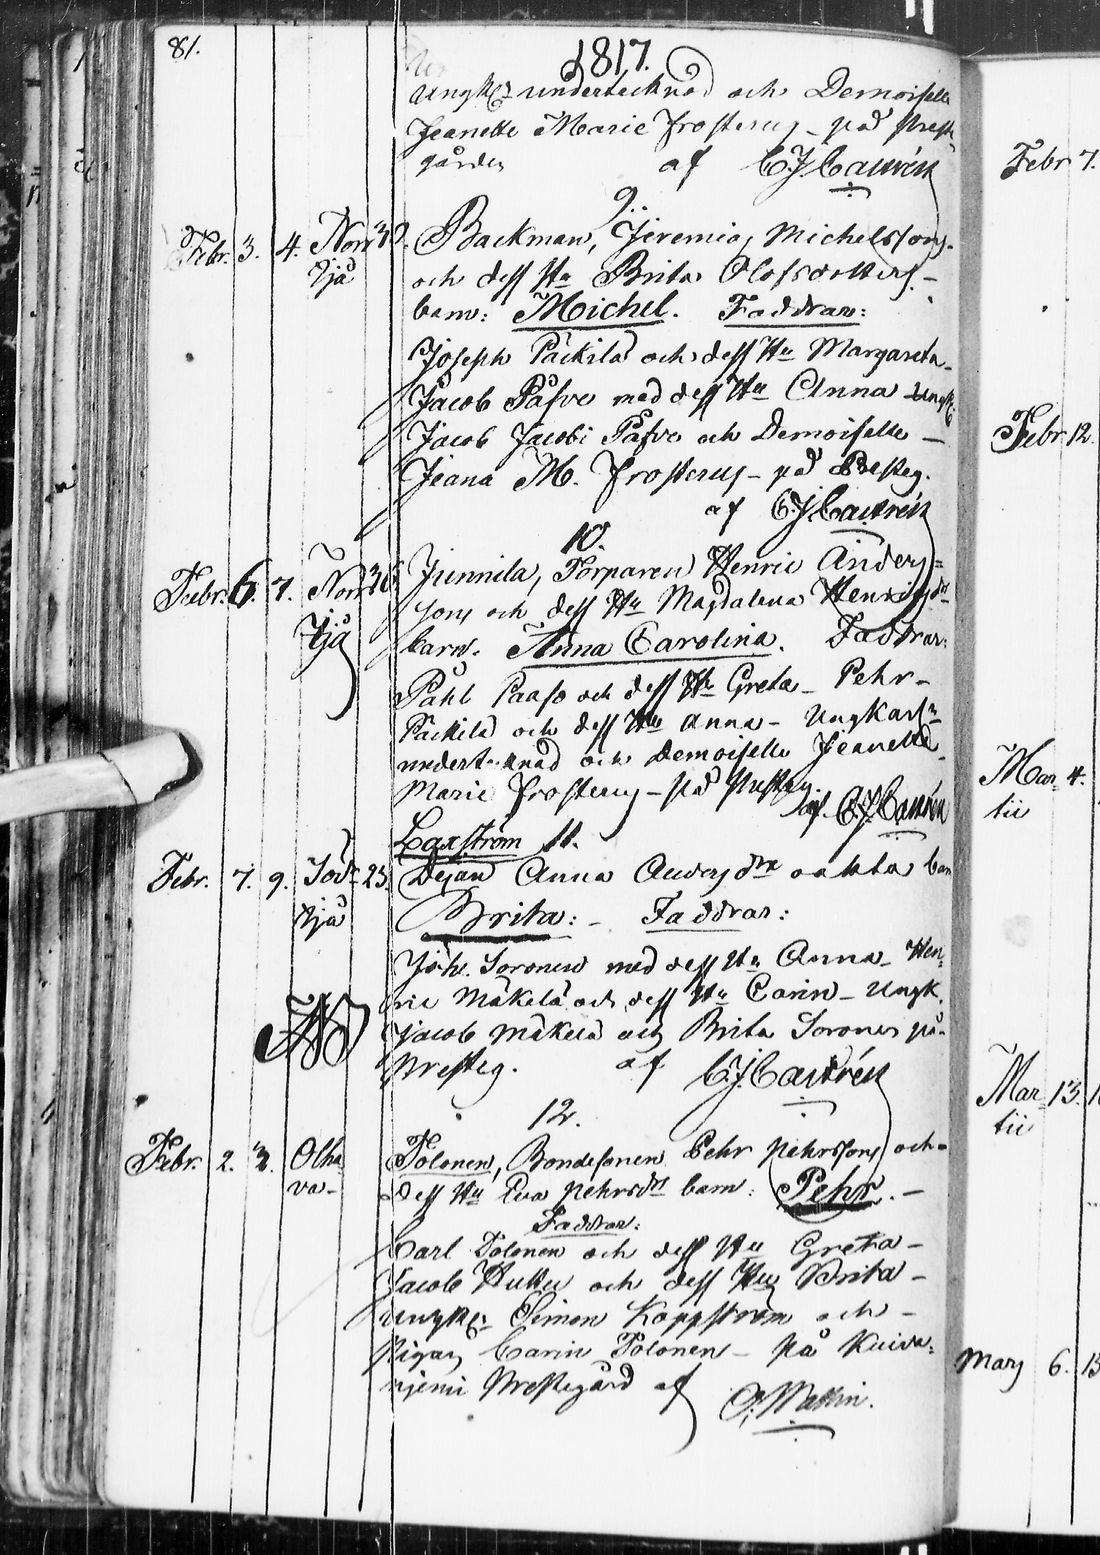 81.
1817.
Ungk: undertecknad och Demoiselle
Jeanette Marie Frosterus – på Prest
gården af C.J. Castrén
9.
Febr. 3. 4. Norr Ijå Backman, Jeremias Michelssons
och dess Hu Brita Olofsdotters –
barn: Michel. Faddrar:
Joseph Päckilä och dess Hu Margareta –
Jacob Påfve med dess Hu Anna – Ungk:
Jacob Jacobi Påfve och Demoiselle –
Jeana M. Frosterus – på Presteg.
af C.J. Castrén
10.
Febr. 6. 7. Norr Ijå Junnila, Torparen Henric Anders=
sons och dess Hu Magdalena Henricsdr
barn. Anna Carolina. Faddrar:
Påhl Paaso och dess Hu Greta – Pehr –
Päckilä och dess Hu Anna – Ungkarln
undertecknad och Demoiselle Jeanette
Marie Frosterus – på Presteg.
af. C.J. Castrén
Laxström 11.
Febr. 7. 9. Söd. Ijå 23. Pigan Anna Andersdrs oäkta barn
Brita: – Faddrar:
Joh. Soronen med dess Hu Anna – Hen=
ric Mäkelä och dess Hu Carin – Ungk.
Jacob Mäkelä och Brita Soronen på
Presteg. af C.J. Castrén
12.
Febr. 2. 3. Olha
va – Tolonen, Bondesonen Pehr Pehrssons och –
dess Hu Eva Pehrsdrs barn: Pehr. –
Faddrar:
Carl Tolonen och dess Hu Greta –
Jacob Huttu och dess Hu Brita –
Ungk: Simon Koppström och –
Pigan Carin Tolonen – på Kuiva=
njemi Prestegård af
Febr 7.
Febr. 12.
Mar= 4.
tii
Mar= 13.
tii
Mars 6.